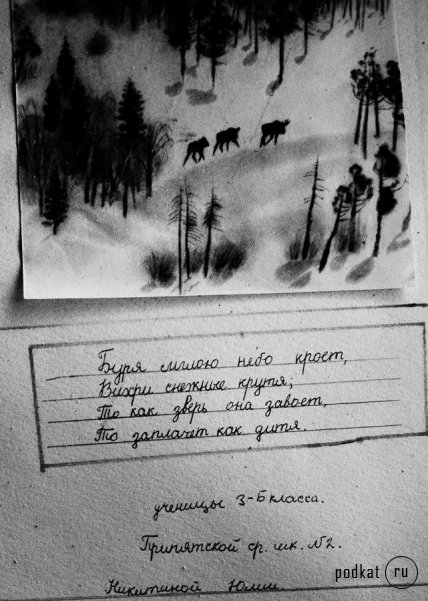 Буря мглою небо кроет,
Вихри снежные крутя;
То как зверь она завоет,
То заплачет как дитя.
ученицы 3-Б класса.
Припятской ср. шк. №2.
Никитиной Юлии.
podkat ru